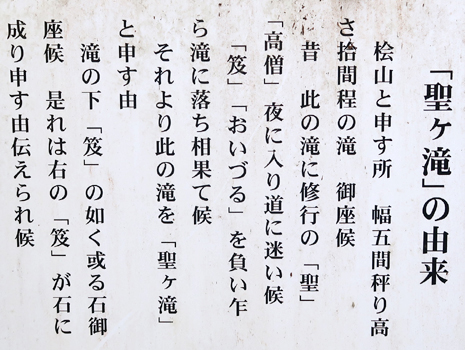 「聖ヶ滝」の由来
桧山と申す所　幅五間秤り高
さ拾間程の滝　御座候
昔　此の滝に修行の「聖」
「高僧」夜に入り道に迷い候
「笈」「おいづる」を負い乍
ら滝に落ち相果て候
それより此の滝を「聖ヶ滝」
と申す由
滝の下「笈」の如く或る石御
座候　是れは右の「笈」が石に
成り申す由伝えられ候